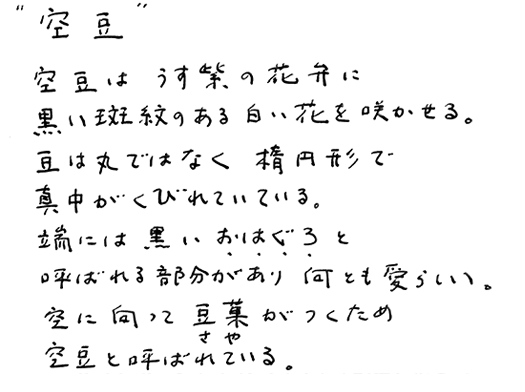 "空豆"
空豆は うす紫の花弁に
黒い斑紋のある白い花を咲かせる。
豆は丸ではなく 楕円形で
真中がくびれていている。
端には黒いおはぐろと
呼ばれる部分があり何とも愛らしい。
空に向って豆菓がつくため
さや
空豆と呼ばれている。